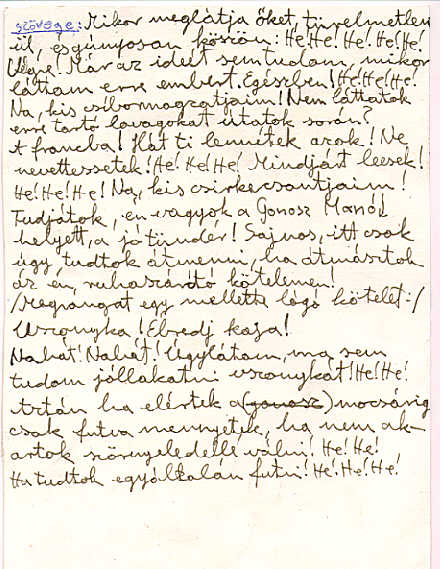 szövege: Mikor meglátja őket, türelmetlen
ül, és gúnyosan köszön: He! He! He! He! He!
Végre! Már az idejét sem tudom, mikor
láttam erre embert. Egészben! He! He! He!
Na, kis csibornogatjaim! Nem láttatok
erre tartó lovagokat útatok során?
A francba! Hát ti lennétek azok! Ne
nevettessetek! He! He! He! Mindjárt leesek!
He! He! He! Na, kis csirkecsontjaim!
Tudjátok, én vagyok a Gonosz Manó
helyett, a jó tündér! Sajnos, itt csak
úgy tudtok átmenni, ha átmásztok
az én, ruhaszárító kötelemen!
/Megrángat egy mellette lógó kötelet:/
Uzonyka! Ébredj kaja!
Nahát! Nahát! Úgylátom, ma sem
tudom jóllakatni uzonykát! He! He!
Aztán ha elértek a (gonosz) mocsárig
csak futva mennyetek, ha nem ak-
artok szörnyeledellé válni! He! He!
Ha tudtok egyáltalán futni! He! He! He!